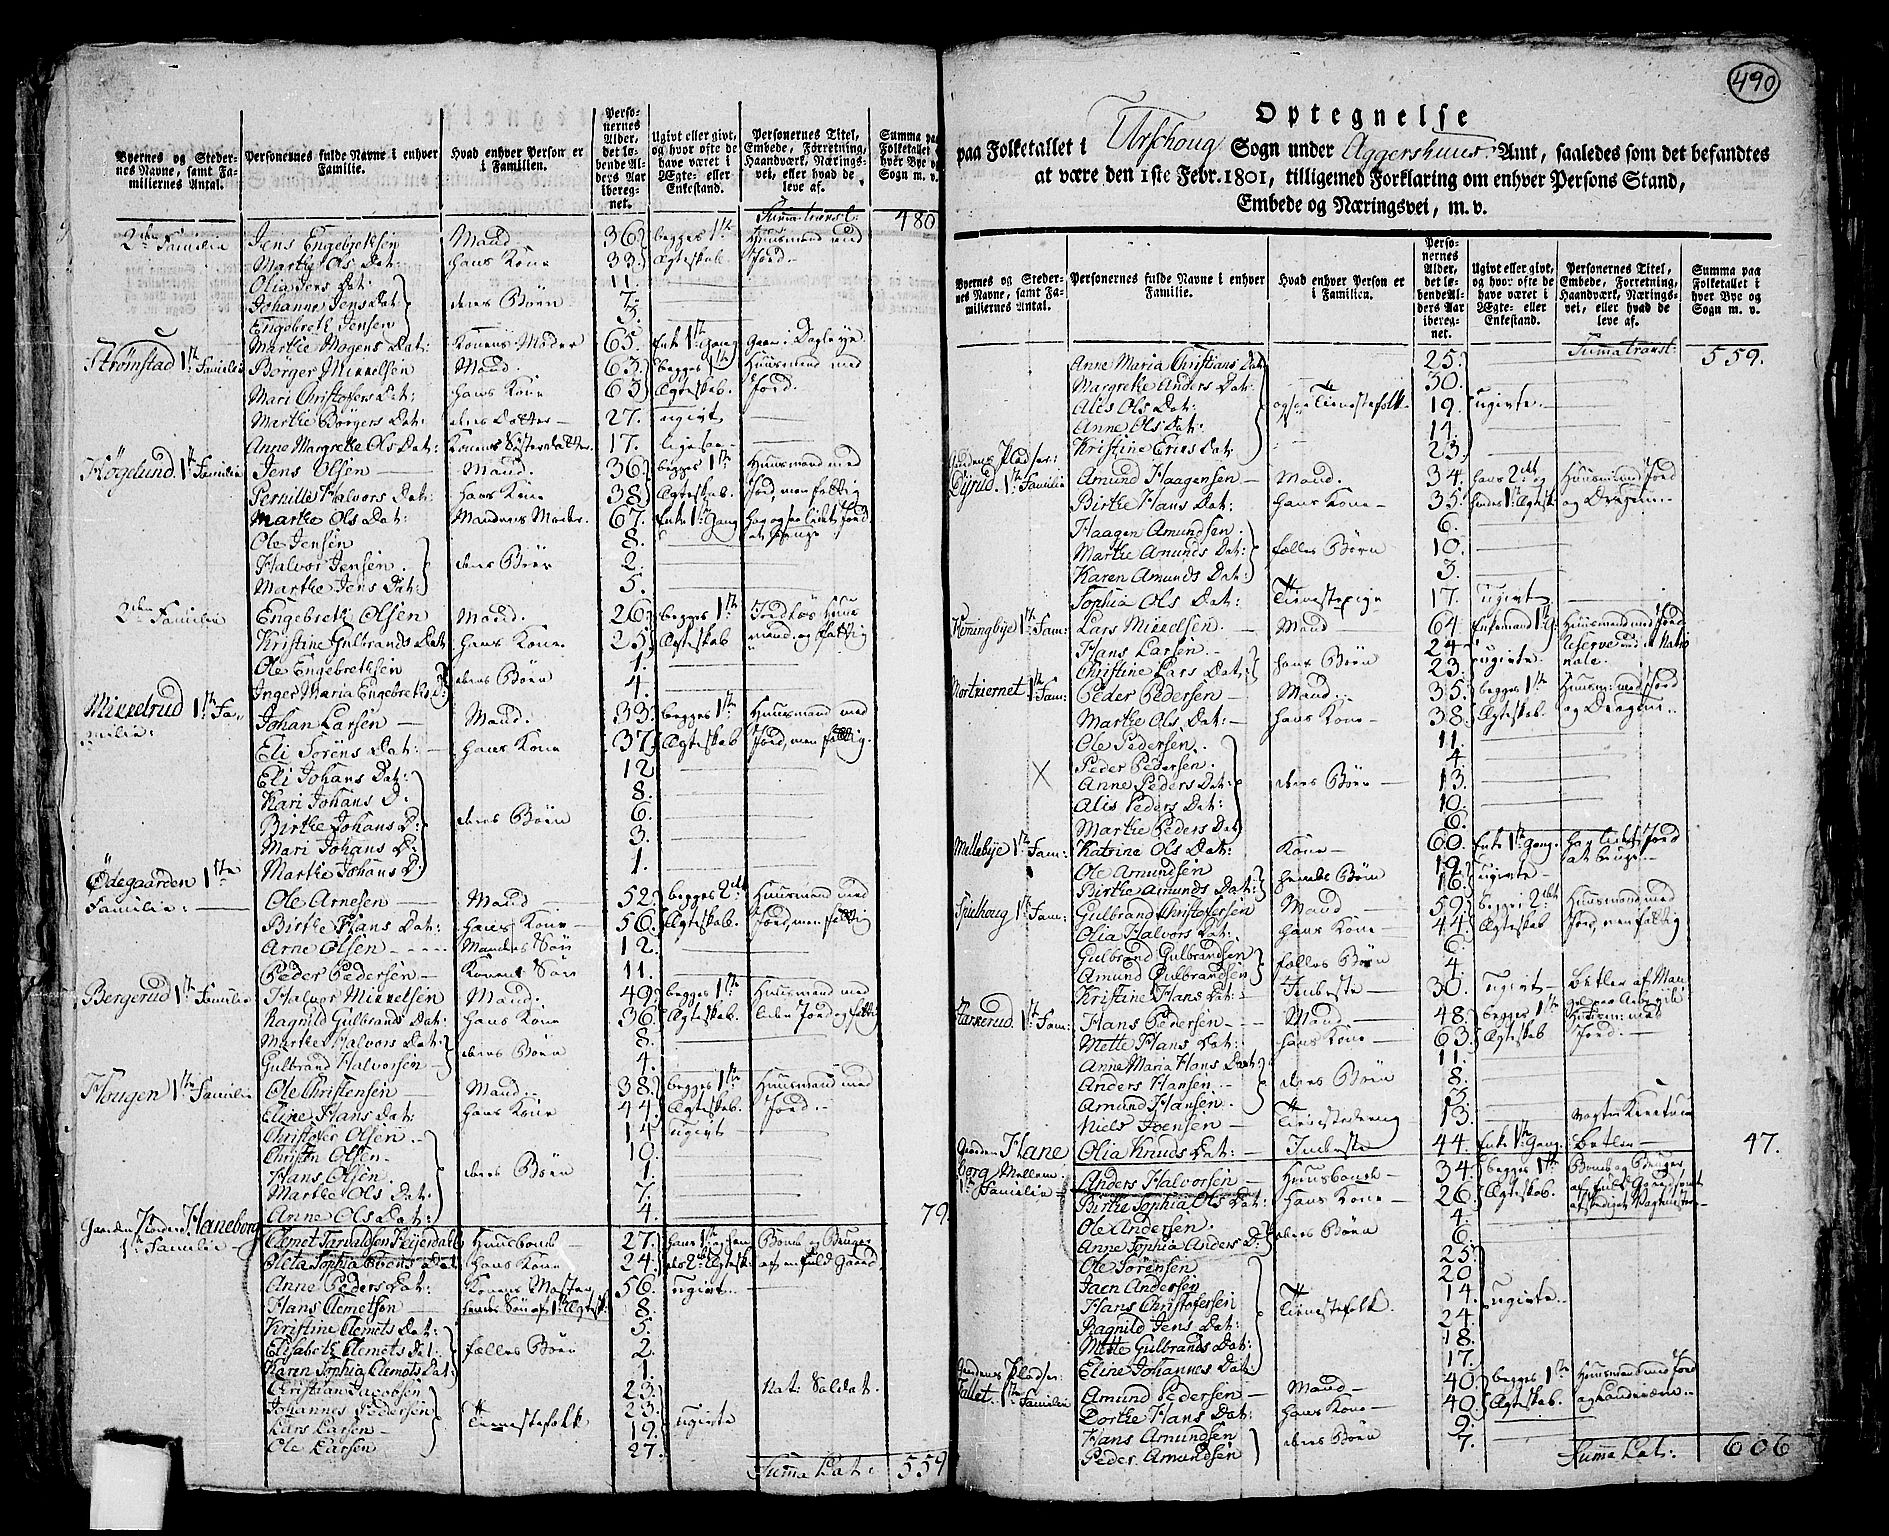 Byernes og Stedernes Navne, samt Familiernes Antal.
Personernes fulde Navne i enhver Familie.
Hvad enhver Person er i Familien.
Personernes Alder, det løbende Alders Aar iberegnet.
Ugivt eller givt, og hvor ofte de have været i Ægte- eller Enkestand.
Personernes Titel, Embede, Forretning, Haandværk, Næringsvei, eller hvad de leve af.
Summa paa Folketallet i hver Bye og Sogn m. v.
Summa transt: 480
2den Familie Jens Engebrektsen Mand 36 begges 1te Huusmand med
Marthe Ols Dat: hans Kone 33 Ægteskab Jord.
Olia Jens Dat: 11.
Johannes Jens Dat: deres Børn 7.
Engebreth Jensen 3.
Marthe Mogens Dat: Konens Moder 65. Enke 1te Gang
Strømstad 1te Familie Børger Mikkelsen Mand. 63. begges 1te Huusmand med
Mari Christofers Dat: hans Kone 63 Ægteskab. Jord.
Marthe Børgers Dat: deres Datter 27. ugivt
Anne Margrethe Ols Dat: Konens Søsterdatter 17. ligesaa
Høgelund. 1te Familie Jens Olsen Mand. 36. begges 1te Huusmand med
Pernille Halvors Dat: hans Kone 38. Ægteskab. Jord, men fattig
Marthe Ols Dat: Mandens Moder. 67. Enke 1te Gang har ogsaa lidet Jord
Ole Jensen 8.
Halvor Jensen deres Børn 2.
Marthe Jens Dat: 5.
2den Familie Engebreth Olsen Mand. 26. begges 1te Jordløs Huus
Kristine Gulbrands Dat hans Kone 25. Ægteskab mand, og fattig
Ole Engebrethsen 1.
Inger Maria Engebreths D: deres Børn 4.
Mikkelrud 1te Familie: Johan Larsen Mand. 33. begges 1te Huusmand med
Eli Sørens Dat: hans Kone 37. Ægteskab Jord, men fattig.
Eli Johans Dat: 12
Kari Johans D: 8.
Birthe Johans D: deres Børn 6.
Mari Johans D: 3.
Marthe Johans D: 1.
Ødegaarden 1te Familie: Ole Arnesen Mand 52. begges 2det Huusmand med
Birthe Hans Dat: hans Kone 56. Ægteskab. Jord, men fattig
Arne Olsen Mandens Søn 12.
Peder Pedersen Konens Søn 11.
Bergerud 1te Familie Halvor Mikkelsen Mand. 49. begges 1te Huusmand med
Ragnild Gulbrands Dat: hans Kone 36. Ægteskab. liden Jord og fattig
Marthe Halvors Dat: deres Børn 8.
Gulbrand Halvorsen 4.
Hougen 1te Familie Ole Christensen Mand. 38. begges 1te Huusmand med
Eline Hans Dat: hans Kone 44. Ægteskab. Jord.
Christofer Olsen 14 ugivt
Christen Olsen 10.
Hans Olsen deres Børn 1.
Marthe Ols Dat: 7.
Anne Ols Dat: 4. 79
Gaarden Haneborg 1te Familie Clemet Tarvaldsen Huusbond 27.
Sophia hans Kone 24. Ægtesk: af en fuld Gaard
Anne Peders Dat: 56. ugivt
Hans Clemetsen 8.
Kristine Clemets Dat: 5.
Elisabeth Clemets Dat: fælles Børn 2.
Karen Sophia Clemets Dat: 1.
Christian Jacobsen 23. Nat: Soldat.
Johannes Pedersen Tienestefolk 23. ugivte
Lars Larsen 19.
Ole Larsen 27.
Summa Lat: 559
490
Optegnelse
paa Folketallet i Urschoug Sogn under Aggershuus Amt, saaledes som det befandtes
at være den 1ste Febr. 1801, tilligemed Forklaring om enhver Persons Stand,
Embede og Næringsvei, m. v.
Byernes og Stedernes Navne, samt Familiernes Antal.
Personernes fulde Navne i enhver Familie.
Hvad enhver Person er i Familien.
Personernes Alder, det løbende Alders Aar iberegnet.
Ugivt eller givt, og hvor ofte de have været i Ægte- eller Enkestand.
Personernes Titel, Embede, Forretning, Haandværk, Næringsvei, eller hvad de leve af.
Summa paa Folketallet i hver Bye og Sogn m. v.
Summa transt: 559.
Anne Maria Christians Dat: 25.
Margrethe Anders Dat: 30.
Alis Ols Dat: Tienestefolk 19. ugivte
Anne Ols Dat: 14.
Kristine Erics Dat: 23.
Gaardens Pladser:
1te Familie Amund Haagensen Mand. 34. hans 2det og Huusmand med Jord
Birthe Hans Dat: hans Kone 35. hendes 1te Ægtesk: og Dragon
Haagen Amundsen 6.
Marthe Amunds Dat: fælles Børn 10.
Karen Amunds Dat: 3.
Sophia Ols Dat: Tienestepige 17. ugivt
1te Fam: Lars Mikkelsen Mand 64. Enkemand 1te G: Huusmand med Jord
Hans Larsen 24 Reserve ved det Natio
Christine Lars Dat: hans Børn 23. ugivte. nale.
1te Fam: Peder Pedersen Mand. 35. begges 1te Huusm: med Jord
Marthe Ols Dat: hans Kone 38. Ægteskab. og Dragon
Ole Pedersen 11.
Peder Pedersen. 4
X Anne Peders Dat: deres Børn 13.
Alis Peders Dat: 10.
Marthe Peders Dat 6.
Mellebye 1te Fam: Katrine Ols Dat: Kone 60. Enke 1te Gang. har lidet Jord
Ole Amundsen 19. ugivte at bruge
Birthe Amunds Dat: hendes Børn 16.
1te Fam: Gulbrand Christofersen Mand 59. begges 2det Huusmand med
Olia Halvors Dat: hans Kone 44. Ægteskab Jord, men fattig
Gulbrand Gulbrandsen 6.
Amund Gulbrandsen fælles Børn 4.
Kristine Hans Dat: Inderste 30. ugivt Betler af Man
1te Fam: Hans Pedersen Mand 48. begges 1te
Mette Hans Dat: hans Kone 63. Ægteskab Jord.
Anne Maria Hans Dat 11.
Anders Hansen deres Børn 8.
Amund Hansen. 3.
Niels Joensen Tienestedreng 13.
Olia Knuds Dat: Inderste 44. Enke 1te Gang. Betler 47.
Gaarden Haneborg Mellem 1te Familie Anders Halvorsen Huusbonde 34. begges 1te
Birthe Sophia Ols Dat: hans Kone 26. Ægteskab.
Ole Andersen. 4.
Anne Sophia Anders D: deres Børn 6.
Ole Sørensen 25.
Joen Andersen 20
Hans Christofersen Tienestefolk. 14. ugivte
Ragnild Jens Dat: 24.
Mette Gulbrands Dat: 18.
Eline Johannes Dat: 17.
Gaardens Pladser:
1te Familie Amund Pedersen Mand 40. begges 1te Huusmand med Jord
Dorthe Hans Dat: hans Kone 40. Ægteskab.
Hans Amundsen 9.
Peder Amundsen deres Børn 7.
Summa Lat: 606